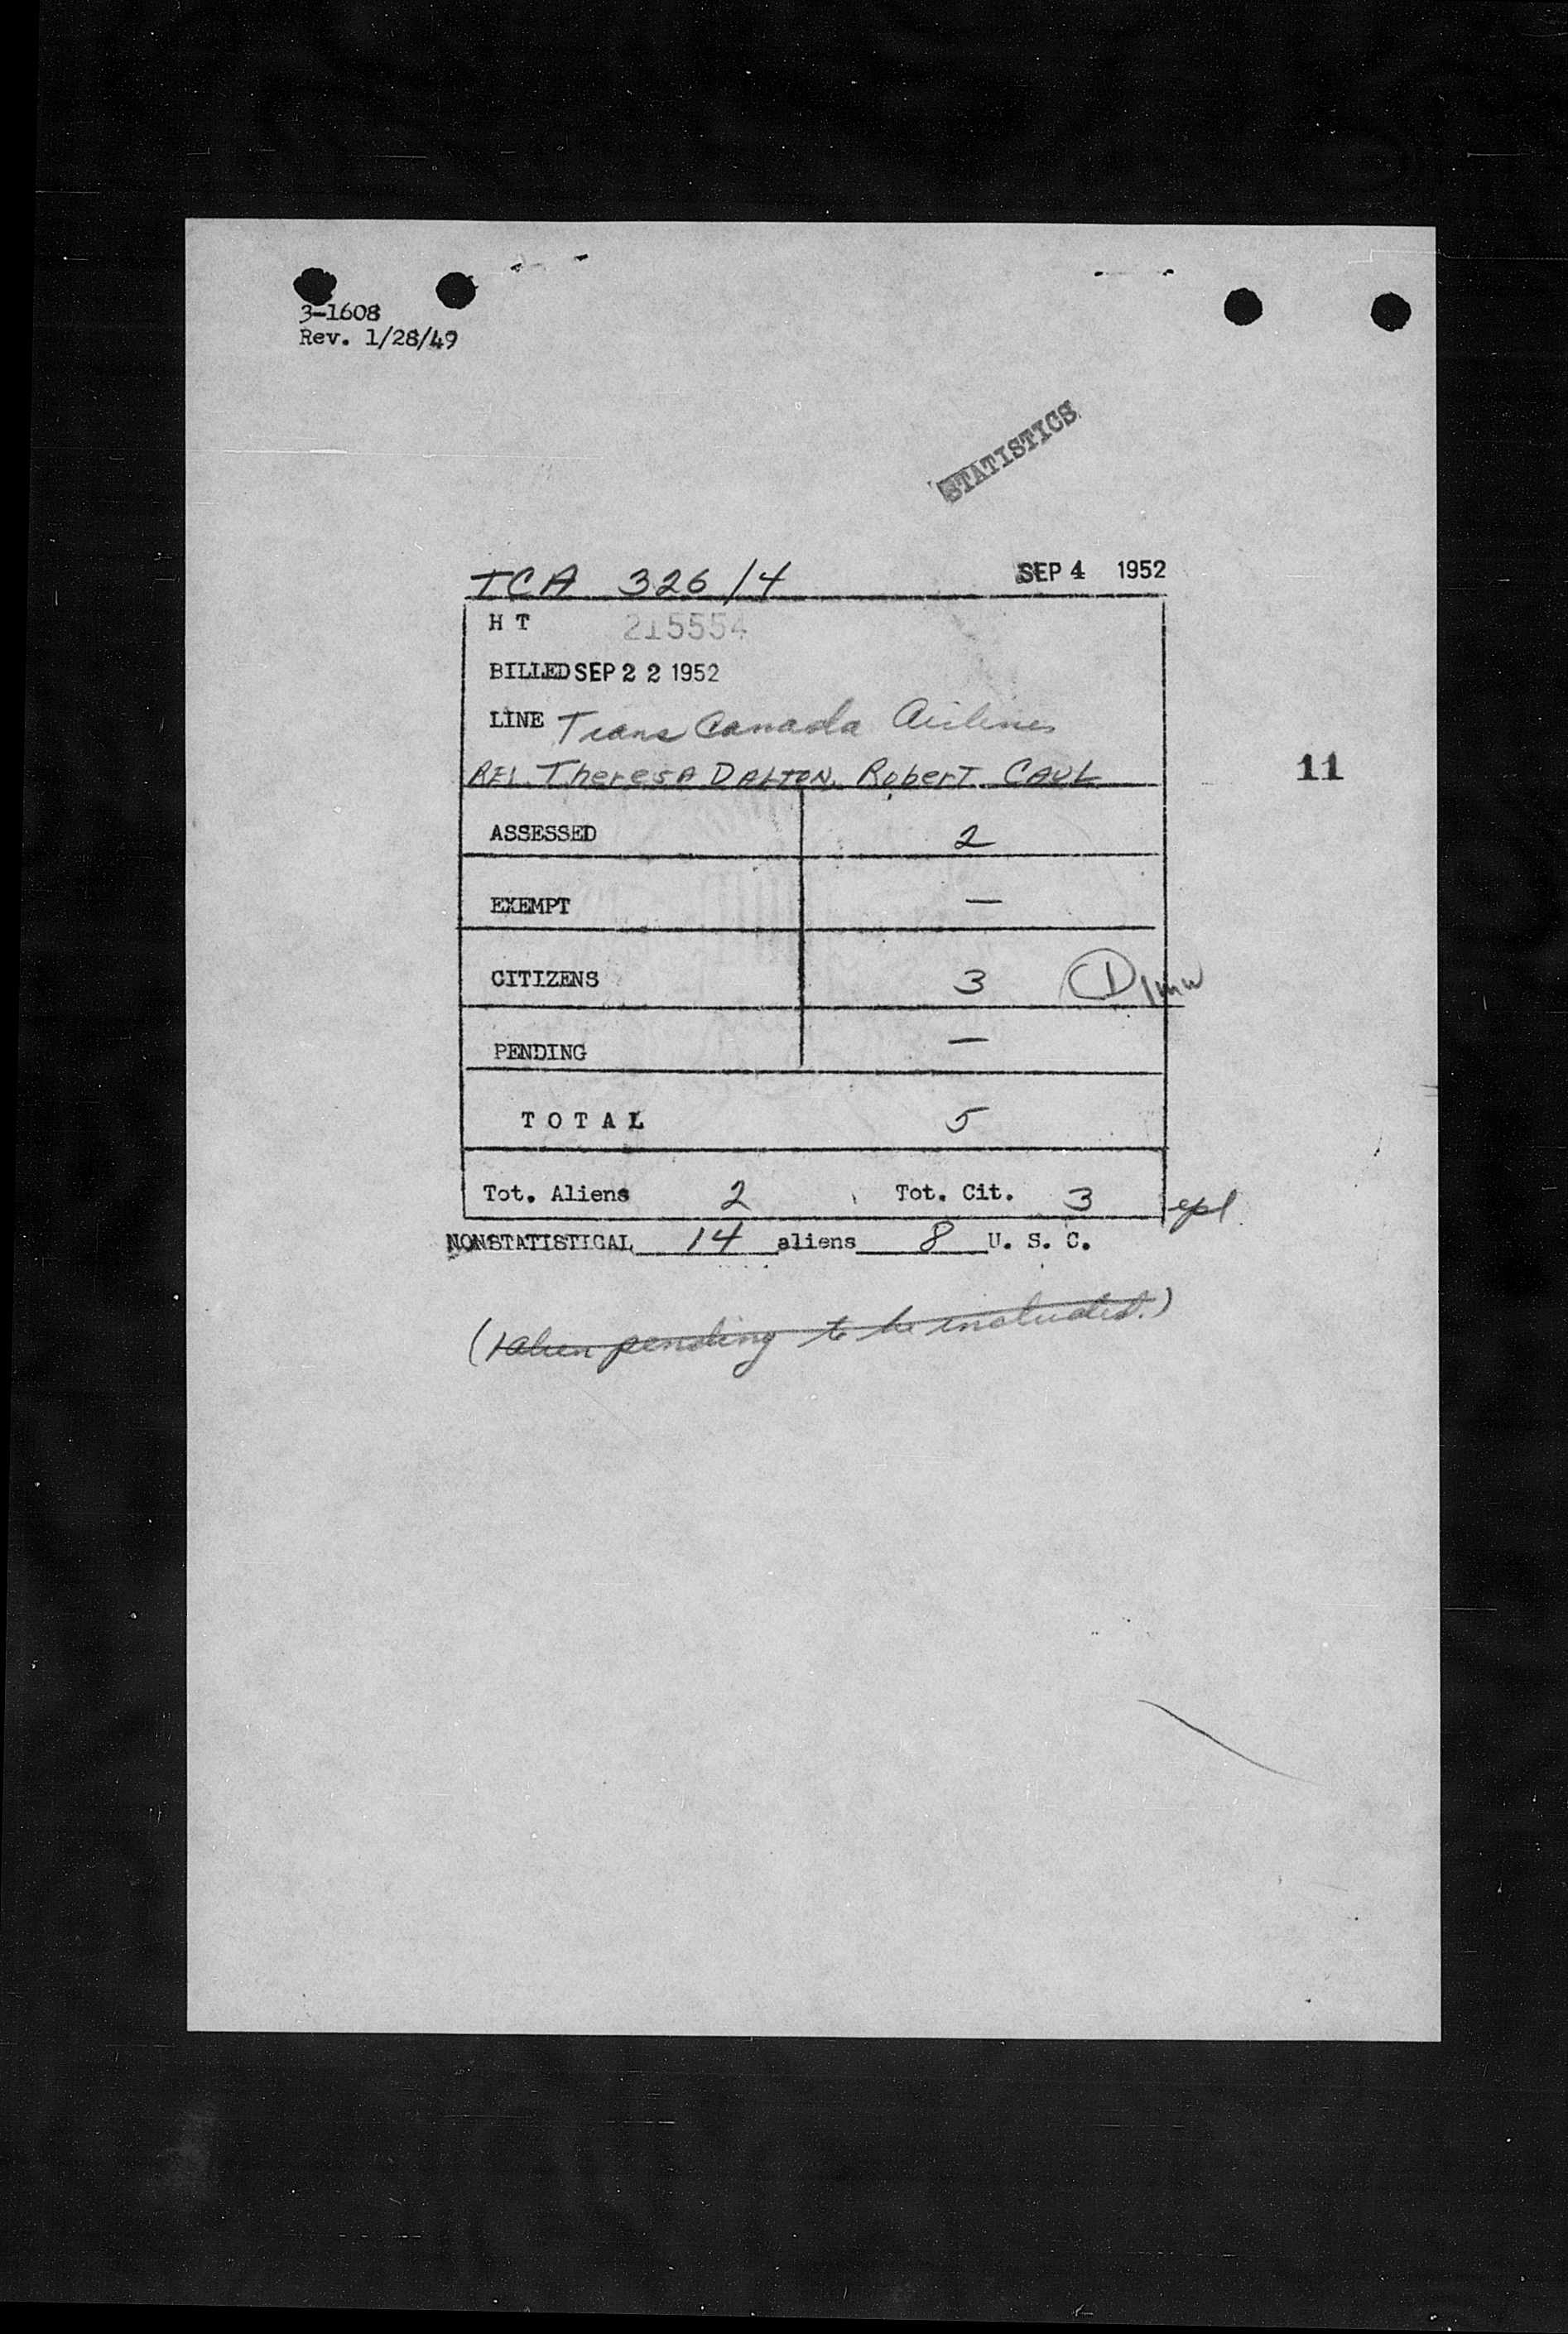 3-1608
Rev. 1/28/49
STATISTICS
TCA 326/4 SEP 4 1952
H T 215554
BILLED SEP 22 1952
LINE Trans Canada Airlines
REL. Theresa DALTON, Robert CAUL
11
ASSESSED 2
EXEMPT —
CITIZENS 3 1 1mw
PENDING —
TOTAL 5
Tot. Aliens 2 Tot. Cit. 3 epl
NONSTATISTICAL 14 aliens 8 U. S. C.
(1 alien pending to be included.)